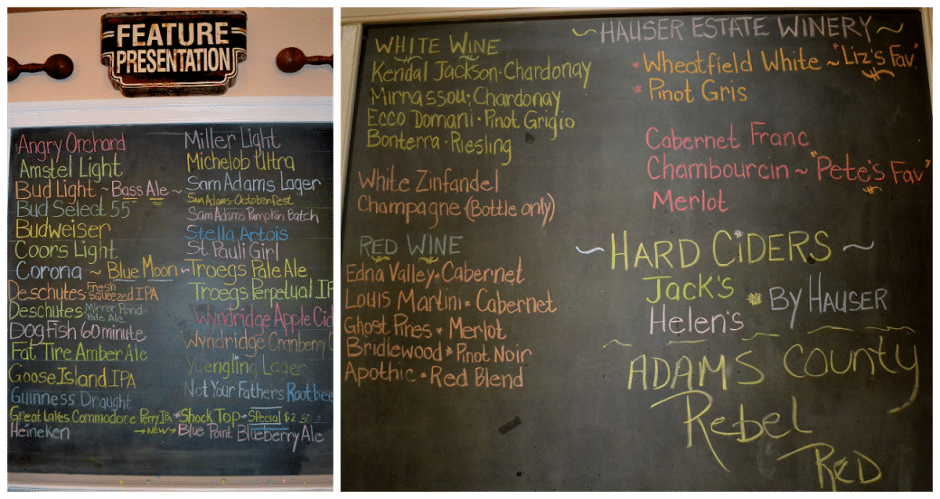 FEATURE
PRESENTATION
Angry Orchard
Amstel Light
Bud Light ~ Bass Ale ~
Bud Select 55
Budweiser
Coors Light
Corona ~ Blue Moon ~
Deschutes Fresh Squeezed IPA
Deschutes Mirror Pond Pale Ale
Dog Fish 60 minute
Fat Tire Amber Ale
Goose Island IPA
Guinness Draught
Great Lakes Commodore Perry IPA
Heineken
Miller Light
Michelob Ultra
Sam Adams Lager
Sam Adams Octoberfest
Sam Adams Pumpkin Batch
Stella Artois
St. Pauli Girl
Troegs Pale Ale
Troegs Perpetual IP
Wyndridge Apple Cid
Wyndridge Cranberry C
Yuengling Lager
Not Your Fathers Root bee
*Shock Top - Special $2.50
→NEW→ Blue Point BlueBerry Ale
WHITE WINE
Kendal Jackson · Chardonay
Mirrassou · Chardonay
Ecco Domani · Pinot Grigio
Bonterra · Riesling
White Zinfandel
Champagne (Bottle only)
RED WINE
Edna Valley · Cabernet
Louis Martini · Cabernet
Ghost Pines · Merlot
Bridlewood · Pinot Noir
Apothic · Red Blend
~ HAUSER ESTATE WINERY ~
* Wheatfield White ~ "Liz's Fav"
* Pinot Gris
Cabernet Franc
Chambourcin ~ "Pete's Fav"
Merlot
~ HARD CIDERS ~
Jack's
Helen's
* BY HAUSER
ADAMS County
Rebel
RED